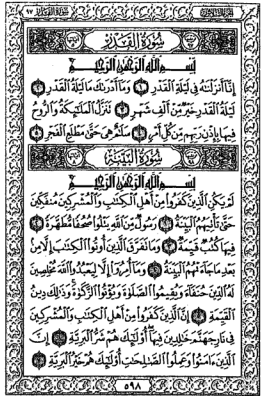 سُورَةُ القَدْرِ
بِسْمِ اللَّهِ الرَّحْمَٰنِ الرَّحِيمِ
إِنَّا أَنزَلْنَٰهُ فِي لَيْلَةِ الْقَدْرِ ١ وَمَا أَدْرَىٰكَ مَا لَيْلَةُ الْقَدْرِ ٢
لَيْلَةُ الْقَدْرِ خَيْرٌ مِّنْ أَلْفِ شَهْرٍ ٣ تَنَزَّلُ الْمَلَٰٓئِكَةُ وَالرُّوحُ
فِيهَا بِإِذْنِ رَبِّهِم مِّن كُلِّ أَمْرٍ ٤ سَلَٰمٌ هِيَ حَتَّىٰ مَطْلَعِ الْفَجْرِ ٥
سُورَةُ البَيِّنَةِ
بِسْمِ اللَّهِ الرَّحْمَٰنِ الرَّحِيمِ
لَمْ يَكُنِ الَّذِينَ كَفَرُوا مِنْ أَهْلِ الْكِتَٰبِ وَالْمُشْرِكِينَ مُنفَكِّينَ
حَتَّىٰ تَأْتِيَهُمُ الْبَيِّنَةُ ١ رَسُولٌ مِّنَ اللَّهِ يَتْلُوا صُحُفًا مُّطَهَّرَةً ٢
فِيهَا كُتُبٌ قَيِّمَةٌ ٣ وَمَا تَفَرَّقَ الَّذِينَ أُوتُوا الْكِتَٰبَ إِلَّا مِنۢ
بَعْدِ مَا جَاءَتْهُمُ الْبَيِّنَةُ ٤ وَمَا أُمِرُوا إِلَّا لِيَعْبُدُوا اللَّهَ مُخْلِصِينَ
لَهُ الدِّينَ حُنَفَاءَ وَيُقِيمُوا الصَّلَوٰةَ وَيُؤْتُوا الزَّكَوٰةَ وَذَٰلِكَ دِينُ
الْقَيِّمَةِ ٥ إِنَّ الَّذِينَ كَفَرُوا مِنْ أَهْلِ الْكِتَٰبِ وَالْمُشْرِكِينَ
فِي نَارِ جَهَنَّمَ خَٰلِدِينَ فِيهَا أُولَٰئِكَ هُمْ شَرُّ الْبَرِيَّةِ ٦ إِنَّ
الَّذِينَ ءَامَنُوا وَعَمِلُوا الصَّٰلِحَٰتِ أُولَٰئِكَ هُمْ خَيْرُ الْبَرِيَّةِ ٧
٥٩٨